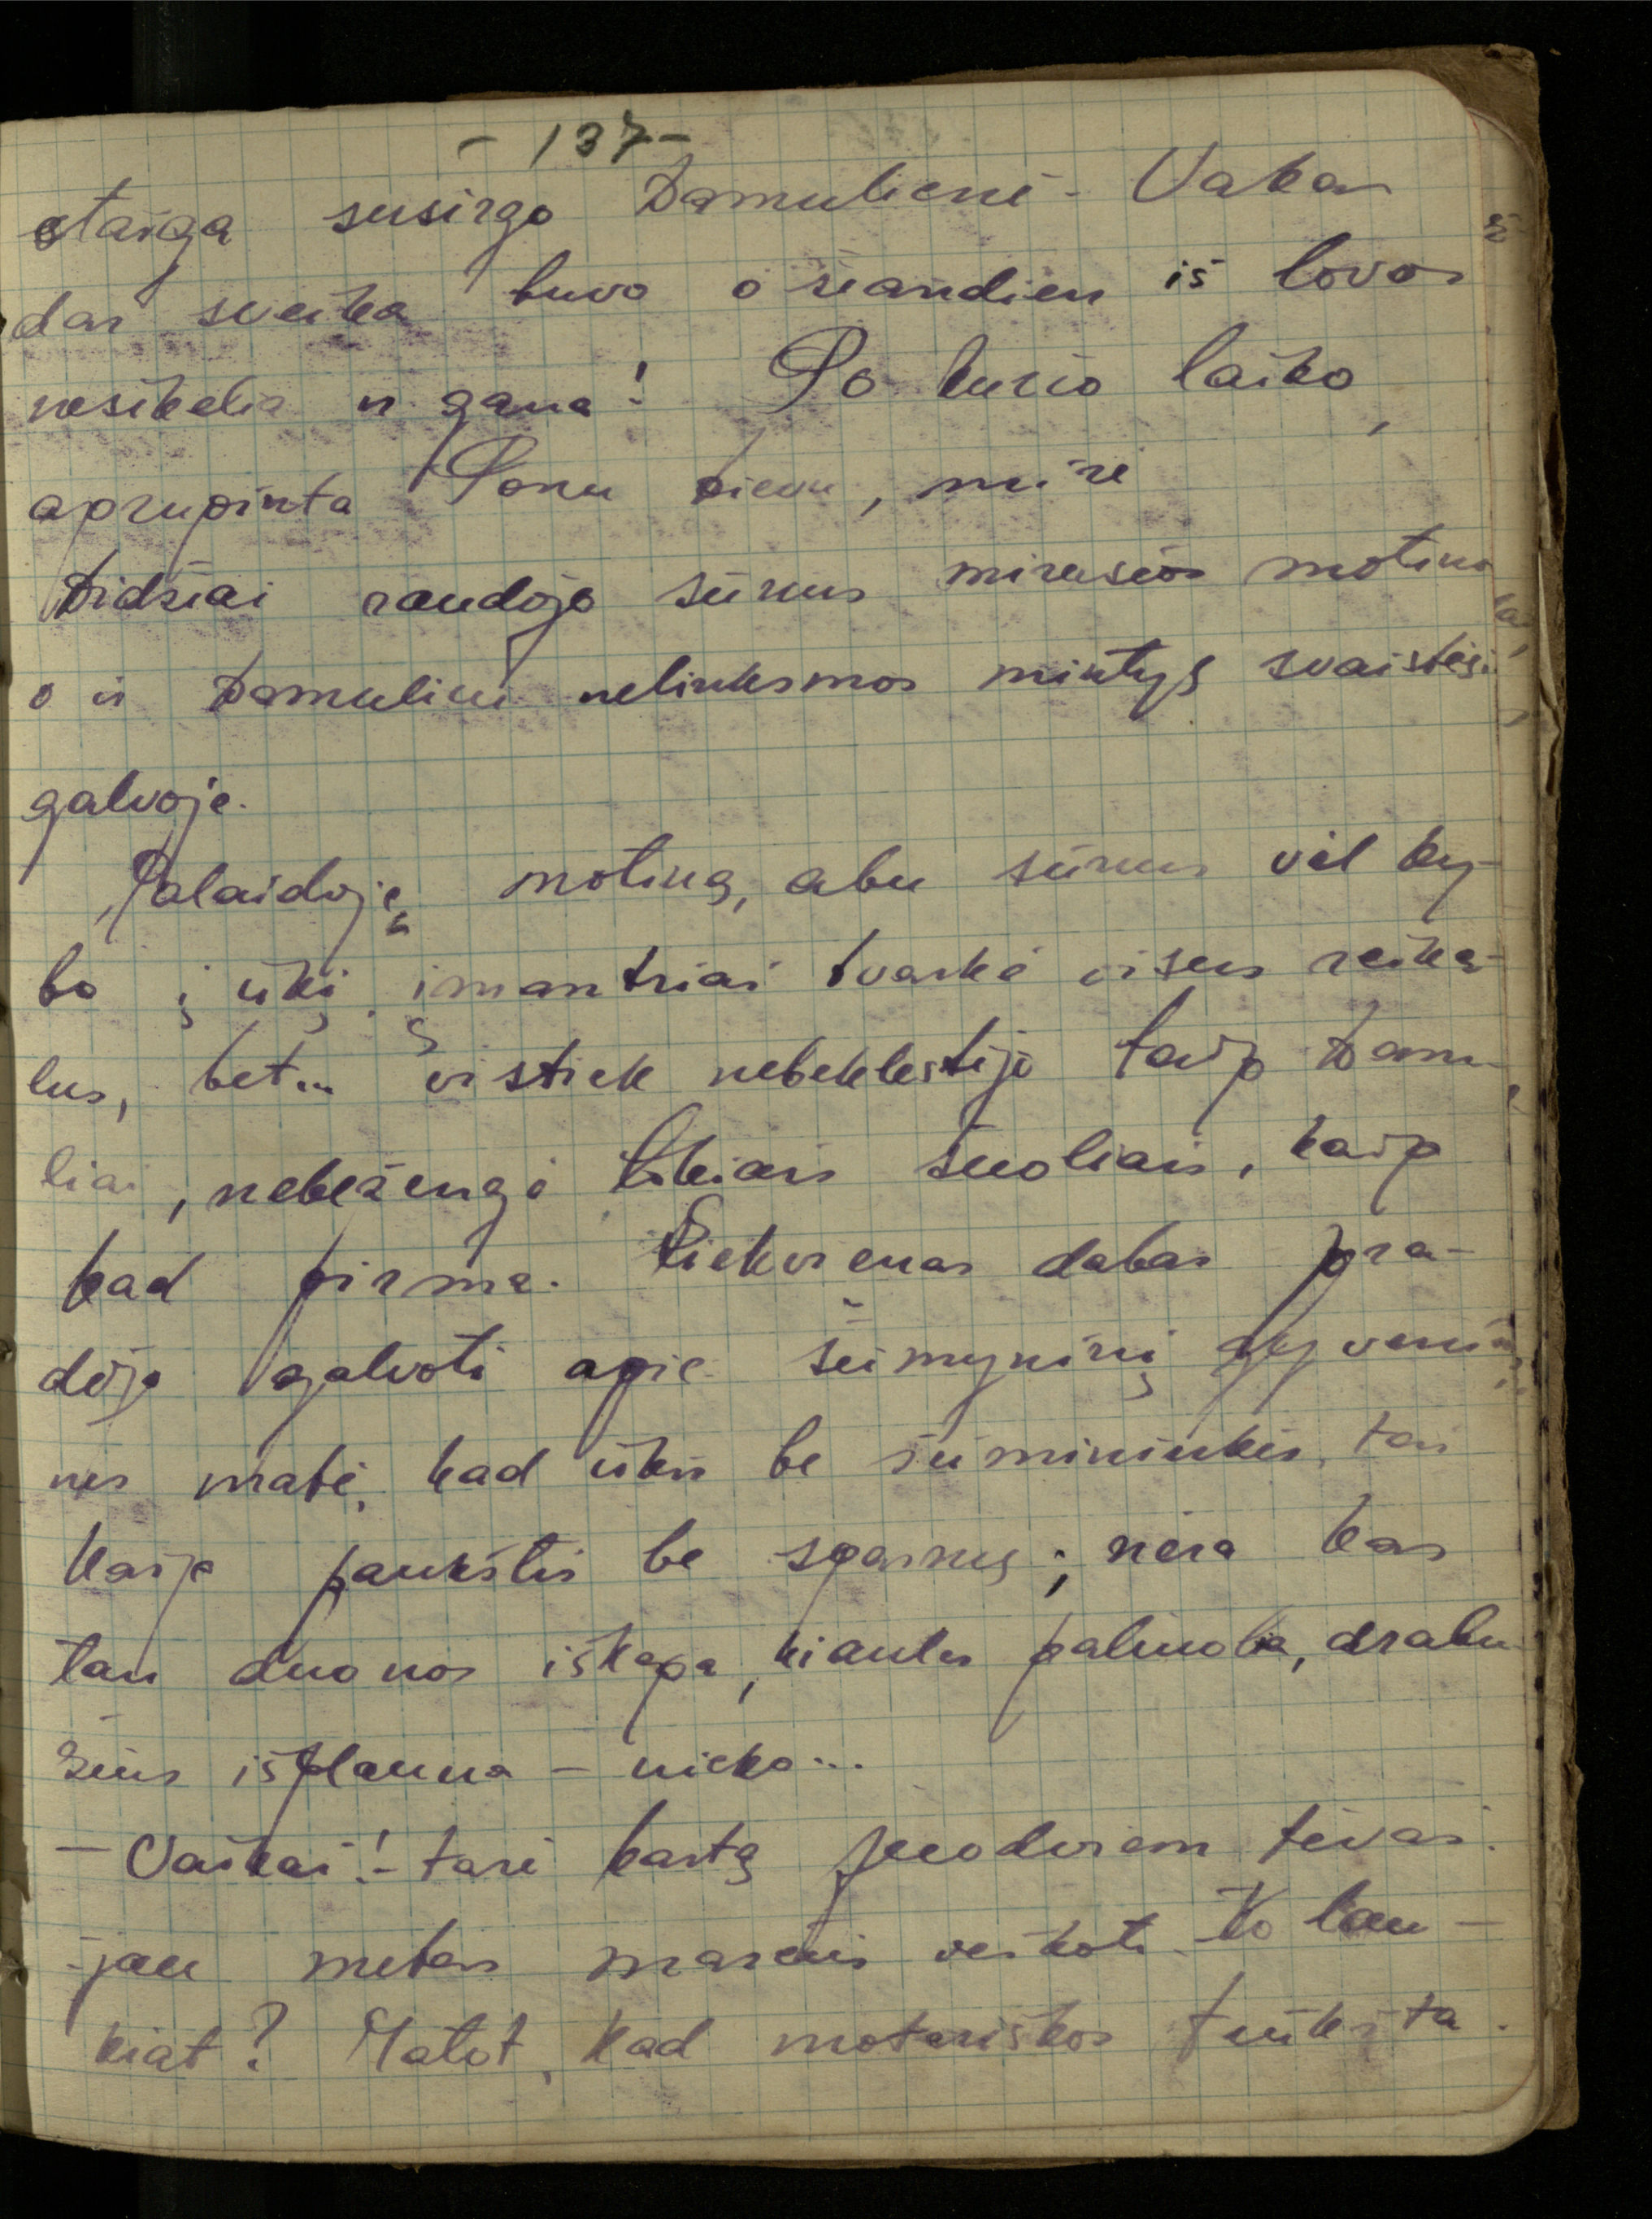 - 137 -
staiga susirgo Damulienė - Vakar
dar sveika buvo o šiandien iš lovos
nesikelia ir gana! Po kurio laiko,
aprupinta Ponu Dievu, mirė
Didžiai raudojo sūnus mirusios motinos
o ir Damuliui nelinksmos mintys svaistėsi
galvoje.
Palaidoję motiną, abu sūnus vėl ky-
bo į ūkį įmantriai tvarkė visus reika-
lus, bet... vistiek nebeklestėjo taip Damu-
liai, nebežengė tokiais šuoliais, kaip
kad pirma. Kiekvienas dabar pra-
dėjo galvoti apie šeimyninį gyvenimą
nes matė, kad ūkis be šeimininkės, tai
kaip paukštis be sparnų; nėra kas
tau duonos iškepa, kiaules paluoba, drabu
žius išplauna - nieko...
- Vaikai! - tarė kartą juodviem tėvas.
- jau metas marčios ieškoti. Ko lau-
kiat? Matot, kad moteriškos trūksta.